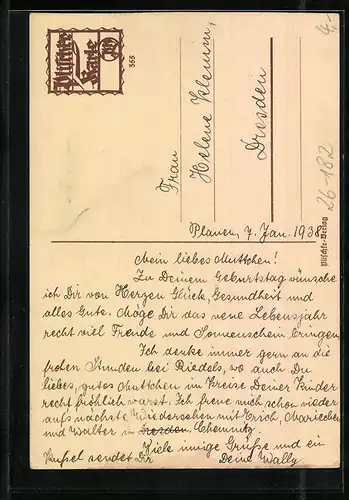 Plischke
Karte
355
4,-
26-182
Plischke-Verlag
Frau
Helene Klemm,
Dresden
Plauen, 7. Jan. 1938
Mein liebes Muttchen!
Zu Deinem Geburtstag wünsche
ich Dir von Herzen Glück, Gesundheit und
alles Gute. Möge Dir das neue Lebensjahr
recht viel Freude und Sonnenschein bringen.
Ich denke immer gern an die
frohen Stunden bei Riedels, wo auch Du
liebes, gutes Muttchen im Kreise Deiner Kinder
recht fröhlich warst. Ich freue mich schon wieder
aufs nächste Wiedersehen mit Erich, Mariechen
und Walter in Chemnitz.
Viele innige Grüße und ein
Küssel sendet Dir Deine Wally.